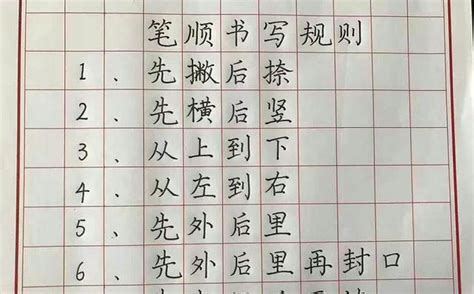 笔顺书写规则
1、先撇后捺
2、先横后竖
3、从上到下
4、从左到右
5、先外后里
6、先外后里再封口